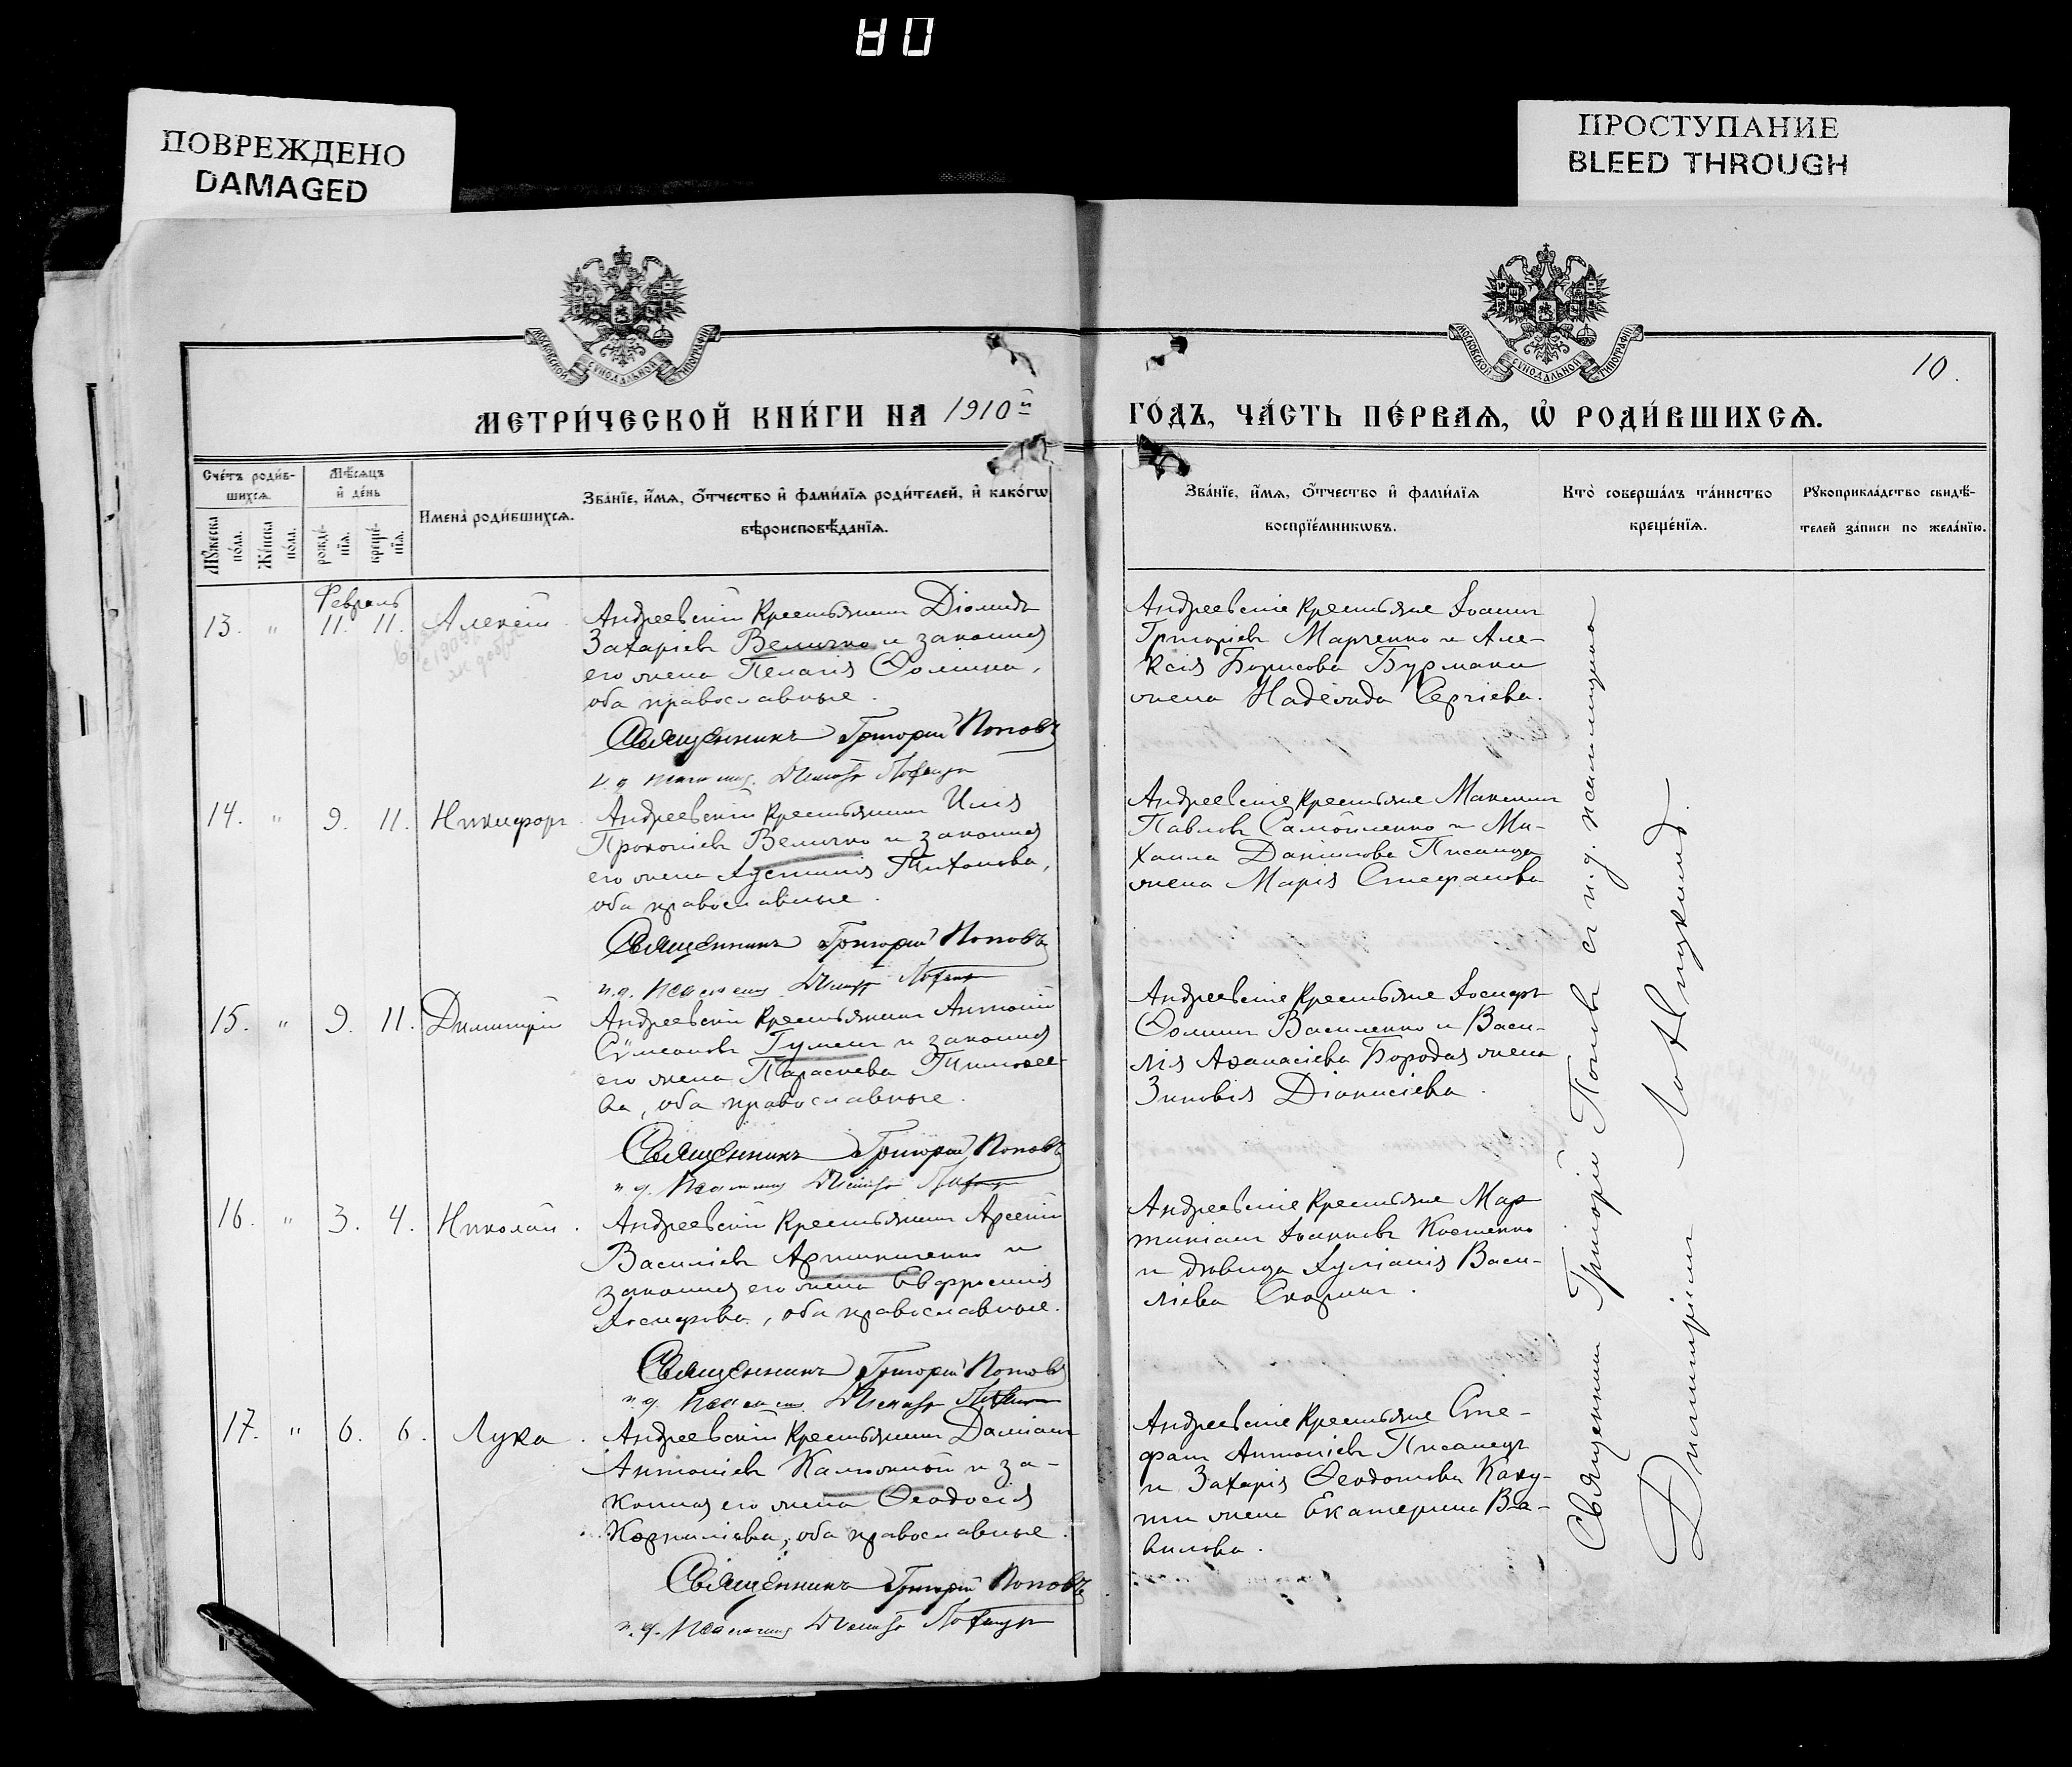 80
ПОВРЕЖДЕНО
DAMAGED
ПРОСТУПАНИЕ
BLEED THROUGH
МОСКОВСКОЙ СѴНОДАЛЬНОЙ ТИПОГРАФІИ
МОСКОВСКОЙ СѴНОДАЛЬНОЙ ТИПОГРАФІИ
10.
МЕТРИ́ЧЕСКОЙ КНИ́ГИ НА 1910й
ГО́ДЪ, ЧА́СТЬ ПЕ́РВАЯ, Ѡ РОДИ́ВШИХСЯ.
Сче́тъ роди́в-
шихся.
Му́жеска по́ла.
Же́нска по́ла.
Мѣ́сяцъ
и де́нь
рожде́-
нїя.
креще́-
нїя.
Имена̀ роди́вшихся.
Зва́нїе, и́мя, о́тчество и фами́лїя роди́телей, и како́гѡ
вѣроисповѣ́данїя.
Зва́нїе, и́мя, о́тчество и фами́лїя
воспрїе́мникѡвъ.
Кто̀ соверша́лъ та́инство
креще́нїя.
Рукоприкла́дство свидѣ́-
телей за́писи по жела́нїю.
Февраль
13. " 11. 11. Алексій.
Андреевскій крестьянинъ Діомидъ
Захаріевъ Величко и законная
его жена Пелагія Ѳомина,
оба православные.
Священникъ Григорій Поповъ
Андреевскіе крестьяне Іоаннъ
Григоріевъ Марченко и Але-
ксія Борисова Бурмаки
жена Надежда Сергіева.
14. " 9. 11. Никифоръ.
Андреевскій крестьянинъ Илія
Прокопіевъ Величко и законная
его жена Іустинія Тихонова,
оба православные.
Священникъ Григорій Поповъ
и.д. псаломщ.
Андреевскіе крестьяне Максимъ
Павловъ Самойленко и Ми-
хаила Даніилова Писанца
жена Марія Стефанова
15. " 9. 11. Димитрій
Андреевскій крестьянинъ Антоній
Сѵмеоновъ Гуменъ и законная
его жена Параскева Тимоѳее-
ва, оба православные.
Священникъ Григорій Поповъ
Андреевскіе крестьяне Іосифъ
Ѳоминъ Василенко и Васи-
лія Аѳанасіева Бородая жена
Зиновія Діонисіева.
16. " 3. 4. Николай.
Андреевскій крестьянинъ Арсеній
Василіевъ и
законная его жена Евфросинія
Іосифова, оба православные.
Священникъ Григорій Поповъ
Андреевскіе крестьяне Мар-
тиніанъ Іоанновъ Костенко
и дѣвица Іуліанія Васи-
ліева Скоринъ.
17. " 6. 6. Лука.
Андреевскій крестьянинъ Даміанъ
Антоніевъ Калюжный и за-
конная его жена Ѳеодосія
Корниліева, оба православные.
Священникъ Григорій Поповъ
и.д. псаломщ.
Андреевскіе крестьяне Сте-
фанъ Антоніевъ Писанецъ
и Захарія Ѳеодотова Каку-
ши жена Екатерина Ва-
вилова.
Священникъ Григорій Поповъ съ и.д. псаломщика
Димитріемъ